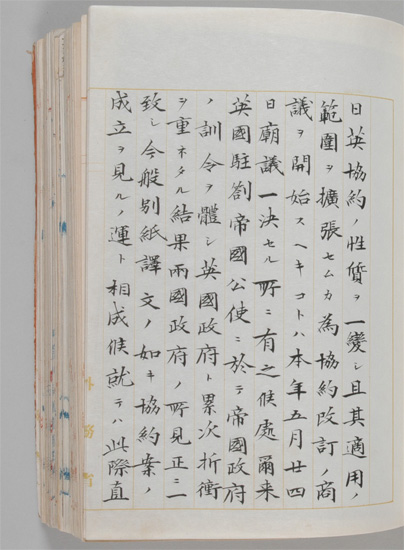 日英協約ノ性質ヲ一變シ且其適用ノ
範圍ヲ擴張セムカ為協約改訂ノ商
議ヲ開始スヘキコトハ本年五月廿四
日廟議一決セル所ニ有之候處爾来
英國駐劄帝國公使ニ於テ帝國政府
ノ訓令ヲ體シ英國政府ト累次折衝
ヲ重ネタル結果兩國政府ノ所見正ニ一
致シ今般別紙譯文ノ如キ協約案ノ
成立ヲ見ルノ運ト相成候就テハ此際直
外務省